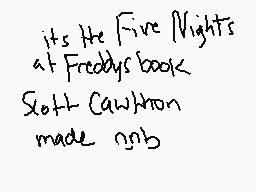 its the Five Nights
at Freddys book
Scott Cawthon
made